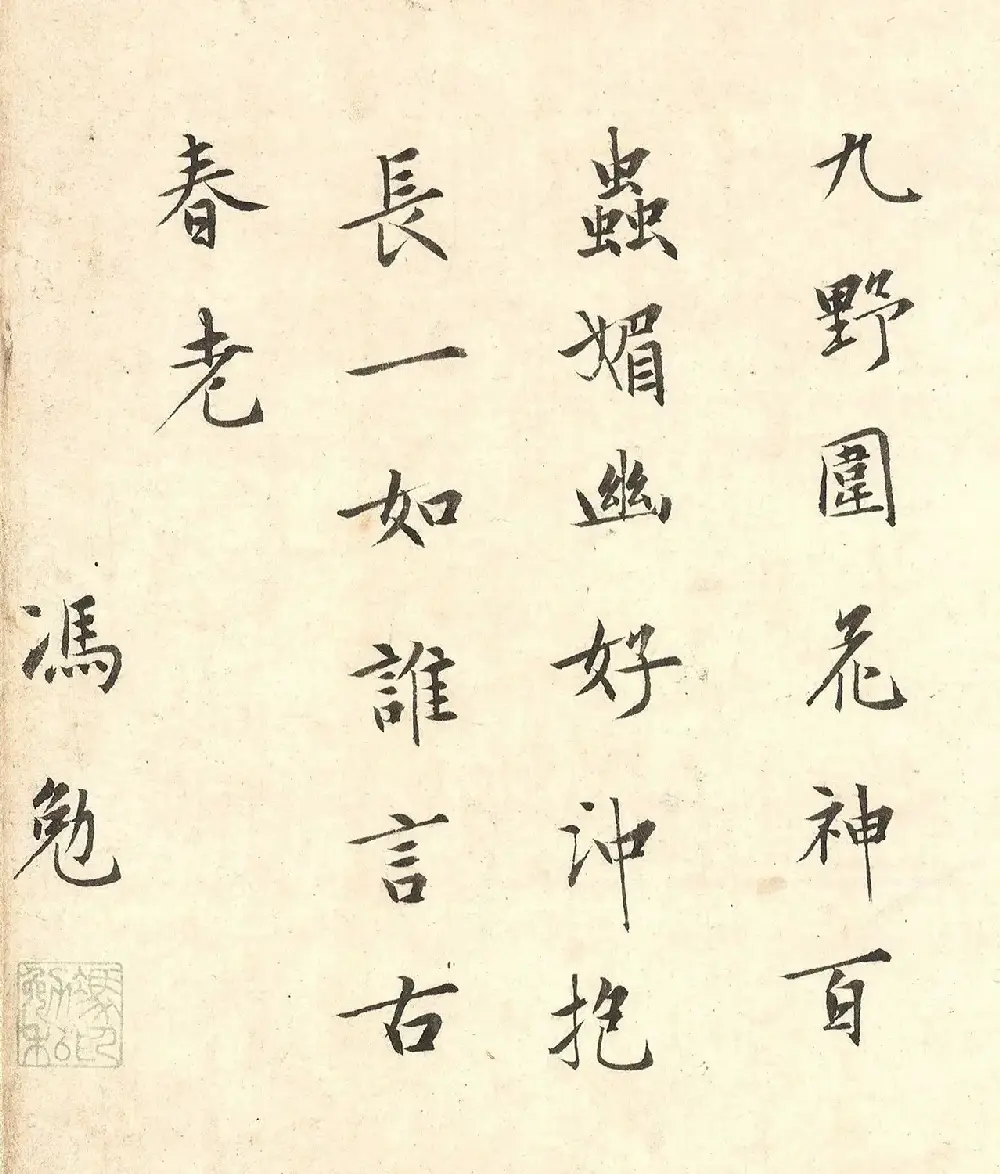 九野圍花神百
蟲媚幽好沖抱
長一如誰言古
春老
馮勉